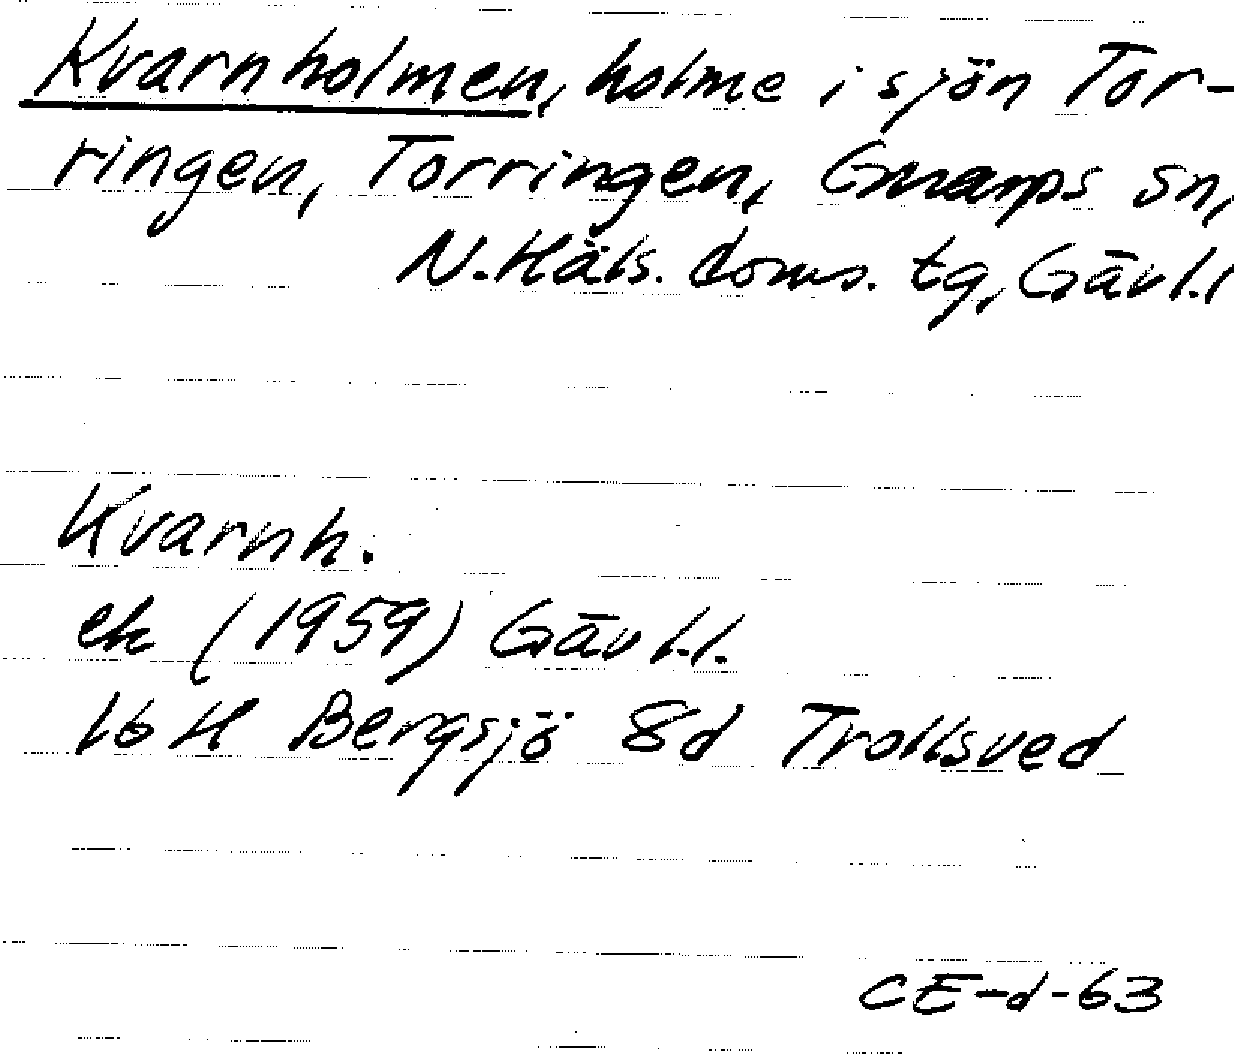 Kvarnholmen, holme i sjön Tor-
ringen, Torringen, Gnarps sn,
N. Häls. doms. tg, Gävl.l
Kvarnh.
ek (1959) Gävl.l.
16 H Bergsjö 8d Trollsved
CE-d-63